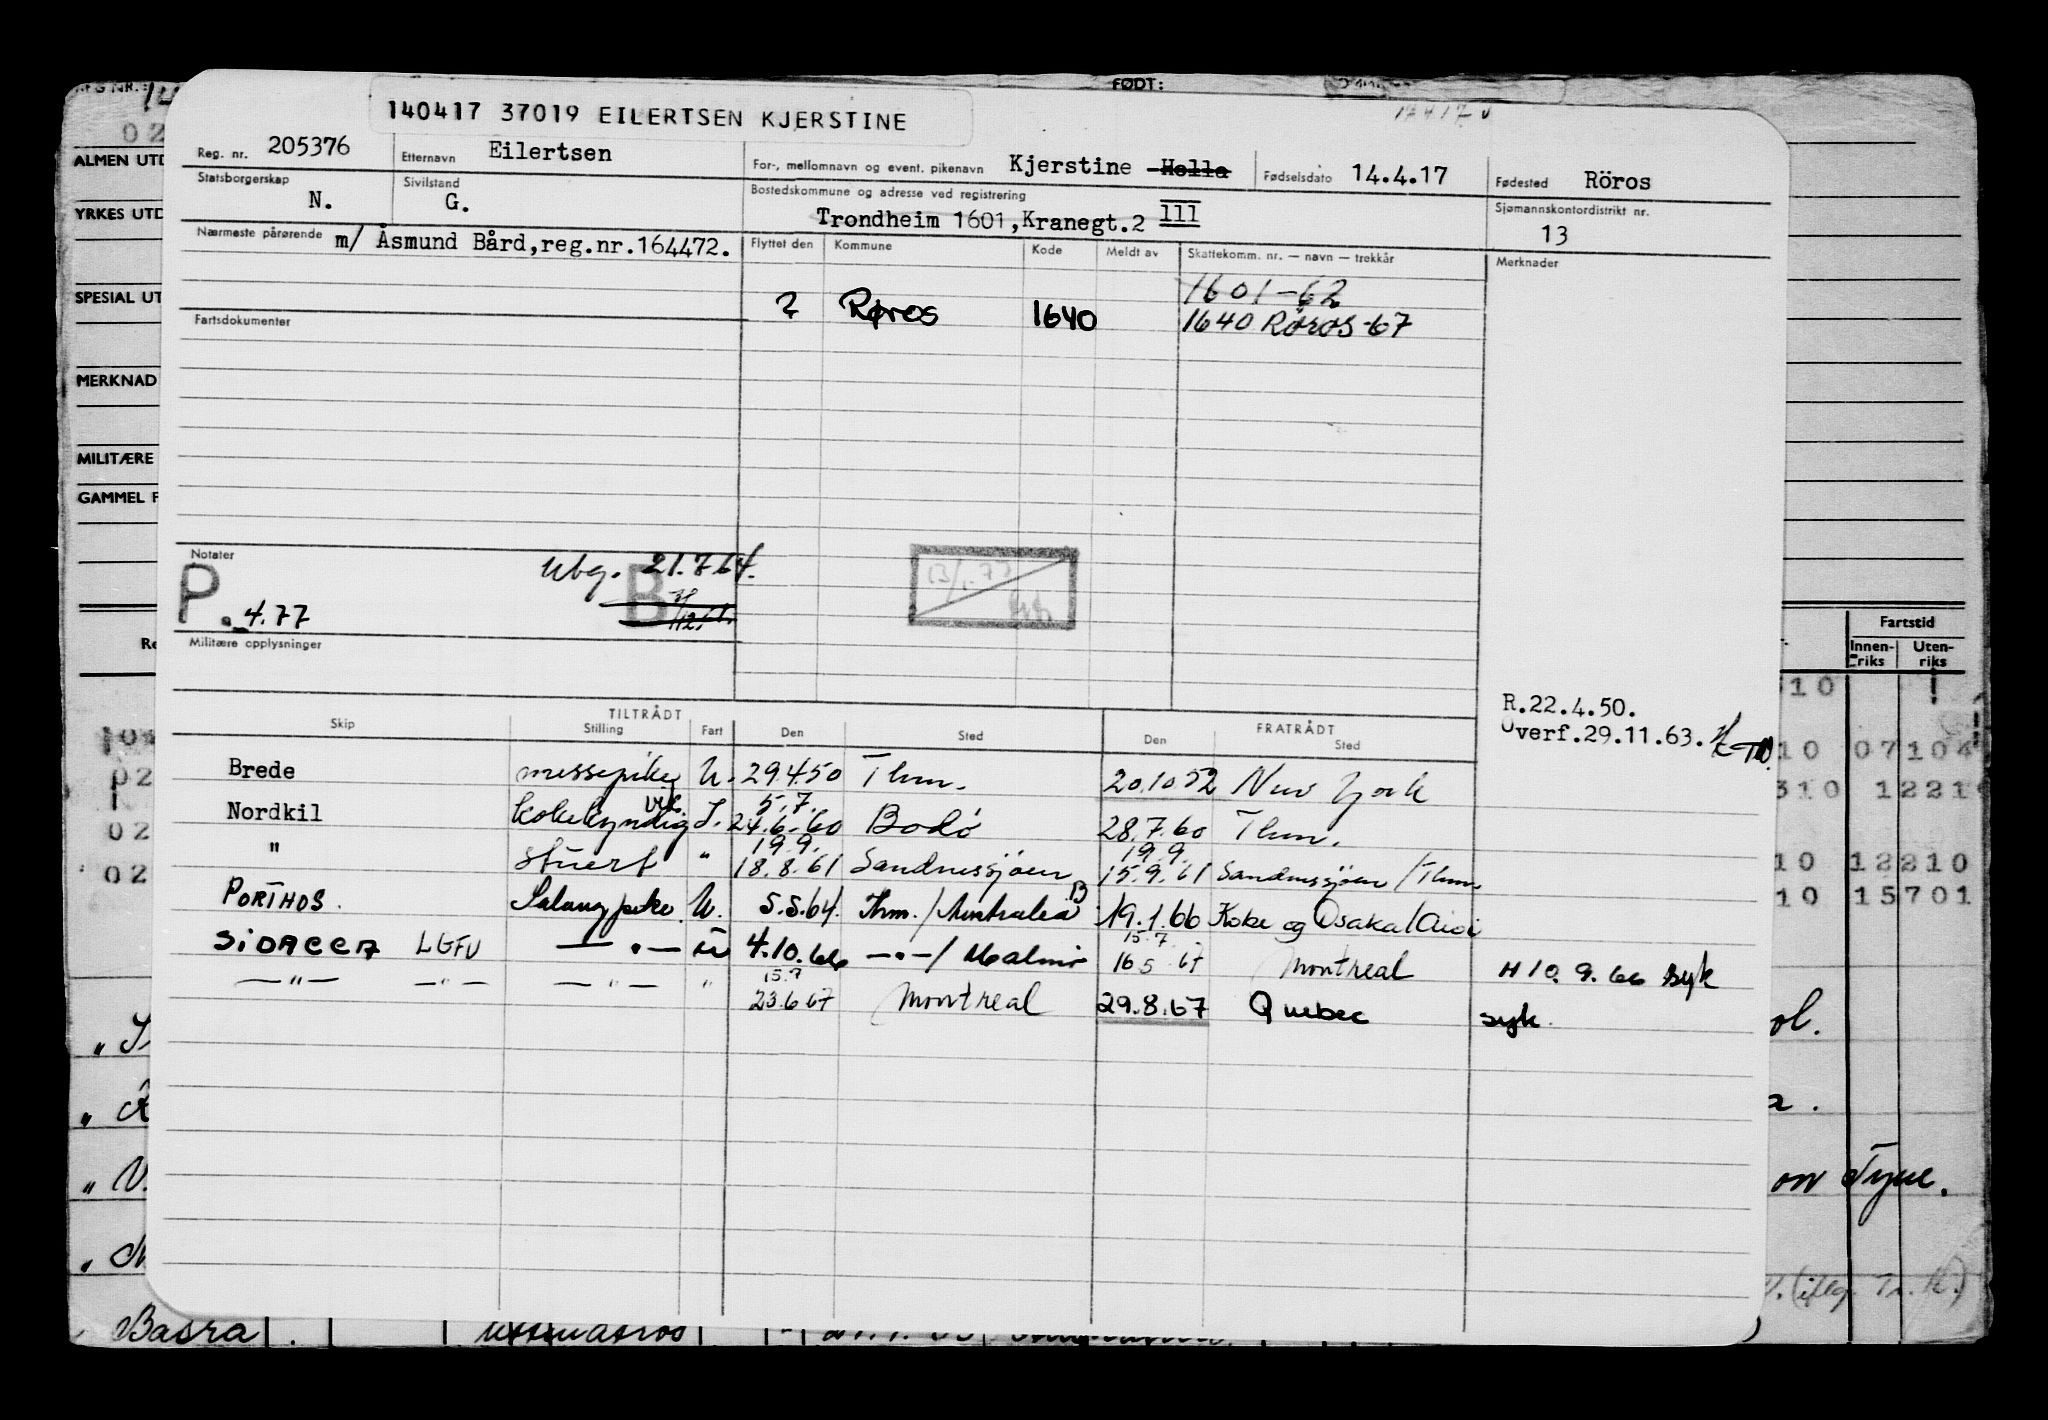 140417 37019 EILERTSEN KJERSTINE
FØDT:
Reg. nr. 205376 Etternavn Eilertsen For-, mellomnavn og event. pikenavn Kjerstine Holla Fødselsdato 14.4.17 Fødested Röros
Statsborgerskap N. Sivilstand G. Bostedskommune og adresse ved registrering Trondheim 1601, Kranegt.2 III Sjømannskontordistrikt nr. 13
Nærmeste pårørende m/ Åsmund Bård,reg.nr.164472. Flyttet den Kommune Kode Meldt av Skattekomm. nr. — navn — trekkår Merknader
1601-62
? Røros 1640 1640 Röros-67
Fartsdokumenter
ALMEN UTD
YRKES UTD
SPESIAL UT
MERKNAD
MILITÆRE
GAMMEL F
Notater
Ubg. 21.7.64.
P. 4.77 B
Militære opplysninger
Fartstid
Innenriks Utenriks
R.22.4.50.
Overf.29.11.63.
TILTRÅDT FRATRÅDT
Skip Stilling Fart Den Sted Den Sted
Brede messepike U. 29.4.50 Thm. 20.10.52 New York
5.7.
Nordkil kokekyndig S. 24.6.60 Bodø 28.7.60 Thm.
19.9. 19.9.
" stuert " 18.8.61 Sandnessjøen 15.9.61 Sandnessjøen / Thm.
PORTHOS. Salongpike U. 5.5.64. Thm. / Australia B 19.1.66 Kobe og Osaka/Aioi
15.7.
SiDACCA LGFU — . — U 4.10.66 — . — / Malmö 16 5 67 Montreal H 10.9.66 syk
15.7
— " — — " — — " — " 23.6.67 Montreal 29.8.67 Quebec syk.
ol.
on Tyne.
Basra